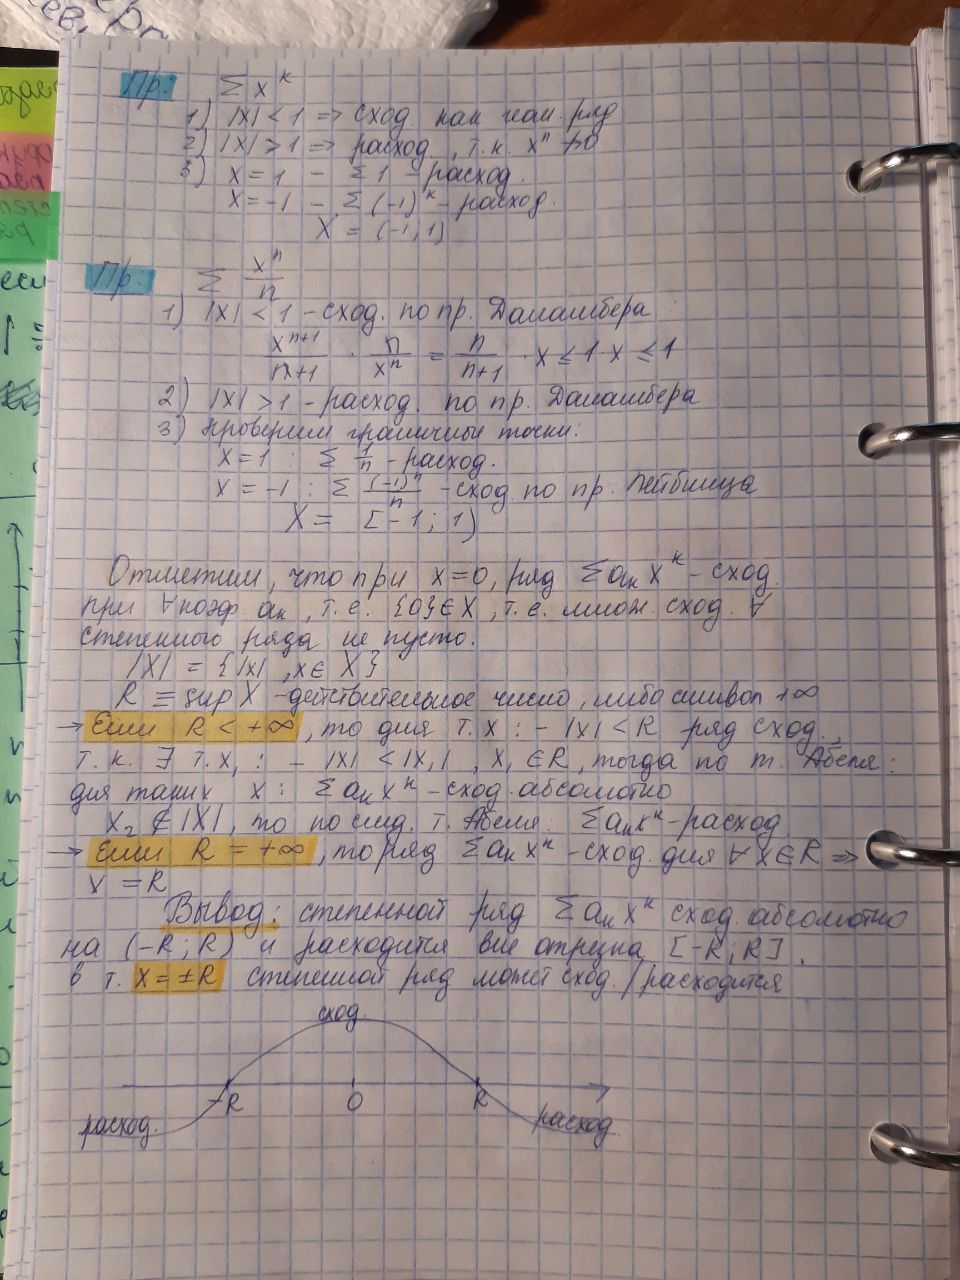 Пр: Σ x^k
1) |x| < 1 => сход. как геом. ряд
2) |x| > 1 => расход., т.к. x^n ↛ 0
3) x = 1 - Σ 1 - расход.
x = -1 - Σ (-1)^k - расход.
X = (-1, 1)
Пр: Σ x^n/n
1) |x| < 1 - сход. по пр. Даламбера
x^{n+1}/(n+1) · n/x^n = n/(n+1) · x ≤ 1 · x ≤ 1
2) |x| > 1 - расход. по пр. Даламбера
3) проверим граничные точки:
x = 1 : Σ 1/n - расход.
x = -1 : Σ (-1)^n/n - сход. по пр. Лейбница
X = [-1; 1)
Отметим, что при x = 0, ряд Σ a_k x^k - сход.
при ∀ коэф. a_k, т.е. {0} ∈ X, т.е. множ. сход. ∀
степенного ряда не пусто.
|X| = {|x|, x ∈ X}
R ≡ sup X - действительное число, либо символ +∞
→ Если R < +∞, то для т. x : - |x| < R ряд сход.,
т.к. ∃ т. x₁ : - |x| < |x₁|, x₁ ∈ R, тогда по т. Абеля:
для таких x : Σ a_k x^k - сход. абсолютно
x₂ ∉ |X|, то по след. т. Абеля: Σ a_k x^k - расход
→ Если R = +∞, то ряд Σ a_k x^k - сход. для ∀ x ∈ R =>
X = R
Вывод: степенной ряд Σ a_k x^k сход. абсолютно
на (-R; R) и расходится вне отрезка [-R; R].
в т. x = ±R степенной ряд может сход./расходится
сход.
-R 0 R
расход. расход.